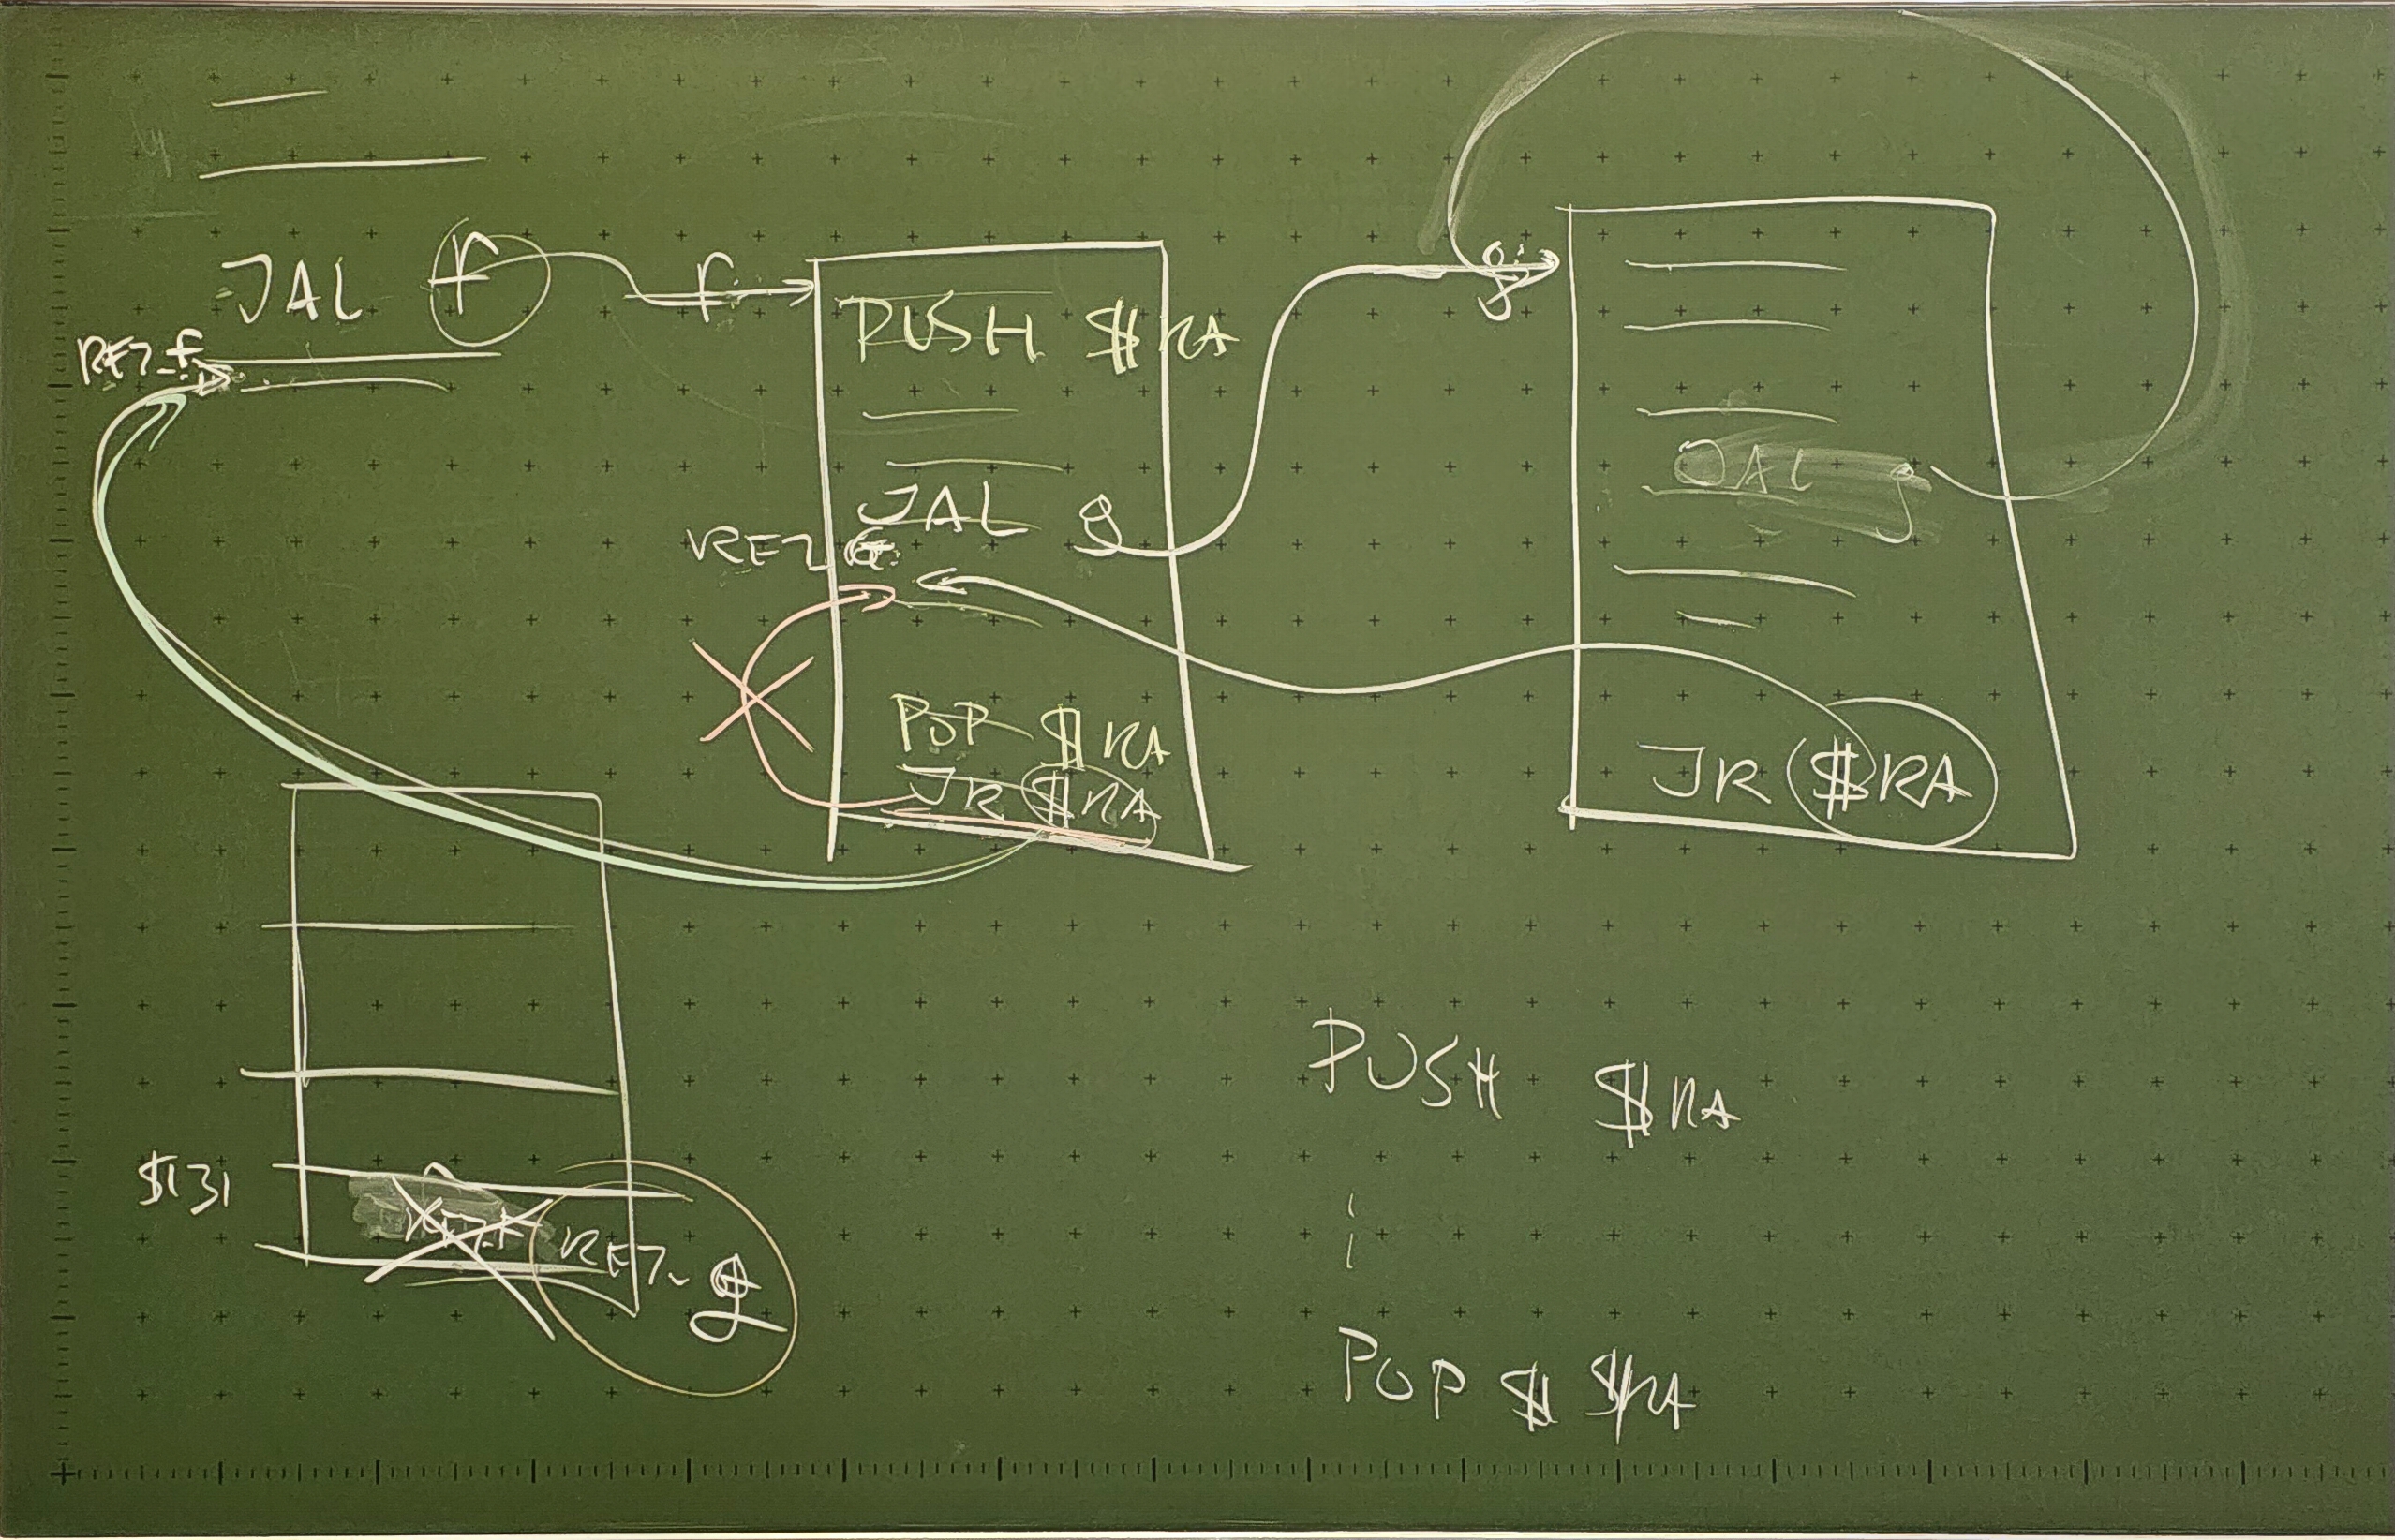 JAL f
RET_f
f:
PUSH $RA
JAL g
RET
POP $RA
JR $RA
g:
JAL g
JR $RA
$131
RET_f RET_g
PUSH $RA
POP $ $RA